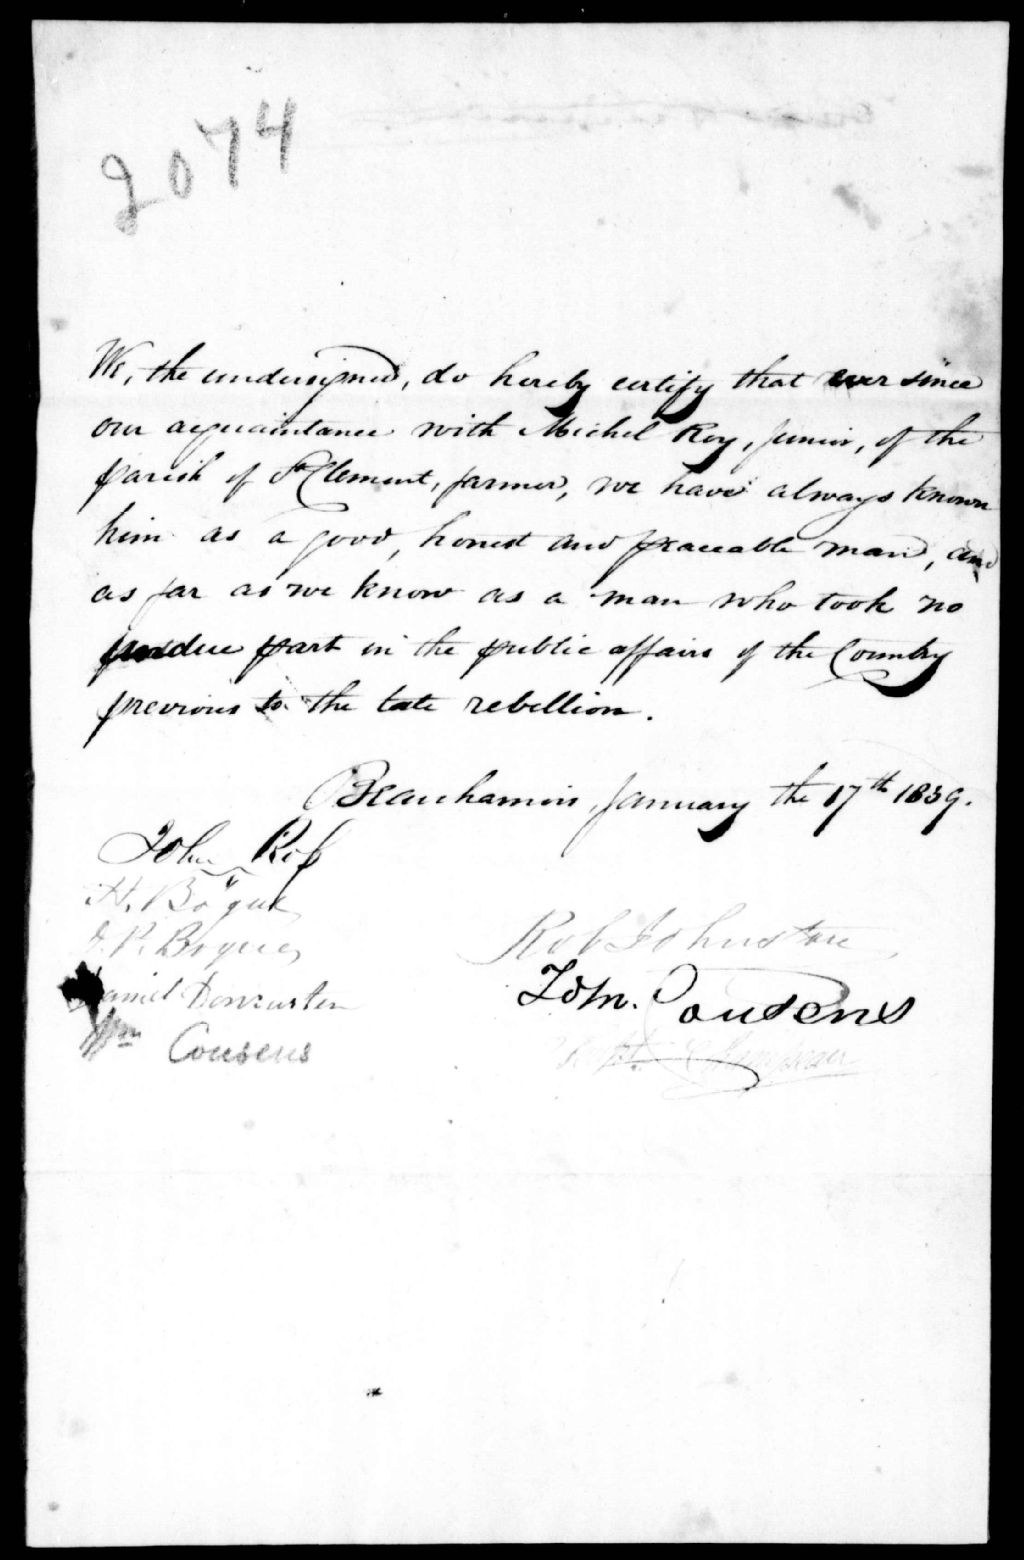 2074
We, the undersigned, do hereby certify that ever since
our acquaintance with Michel Roy, junior, of the
parish of St Clement, farmer, we have always known
him as a good, honest and peaceable man, and
as far as we know as a man who took no
undue part in the public affairs of the Country
previous to the late rebellion.
Beauharnois, January the 17th 1839.
John Rob
H. Bogue
J. P. Bogue
Daniel
Wm Cousens
Rob Johnston
Edw. Cousens